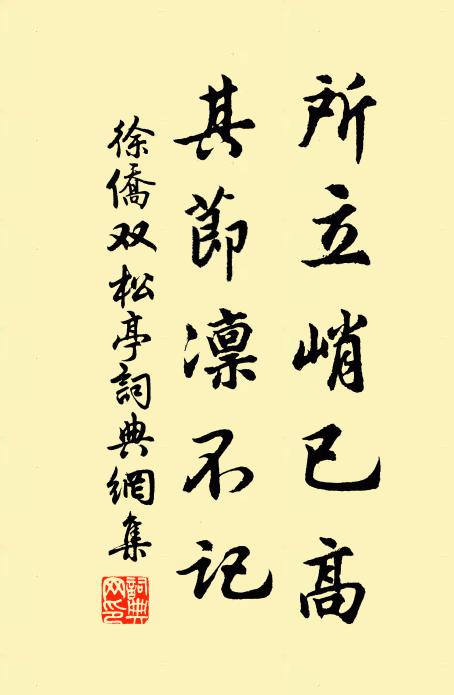 所立峭已高
其節凛不記
徐僑双松亭詞典網集
詞典網印